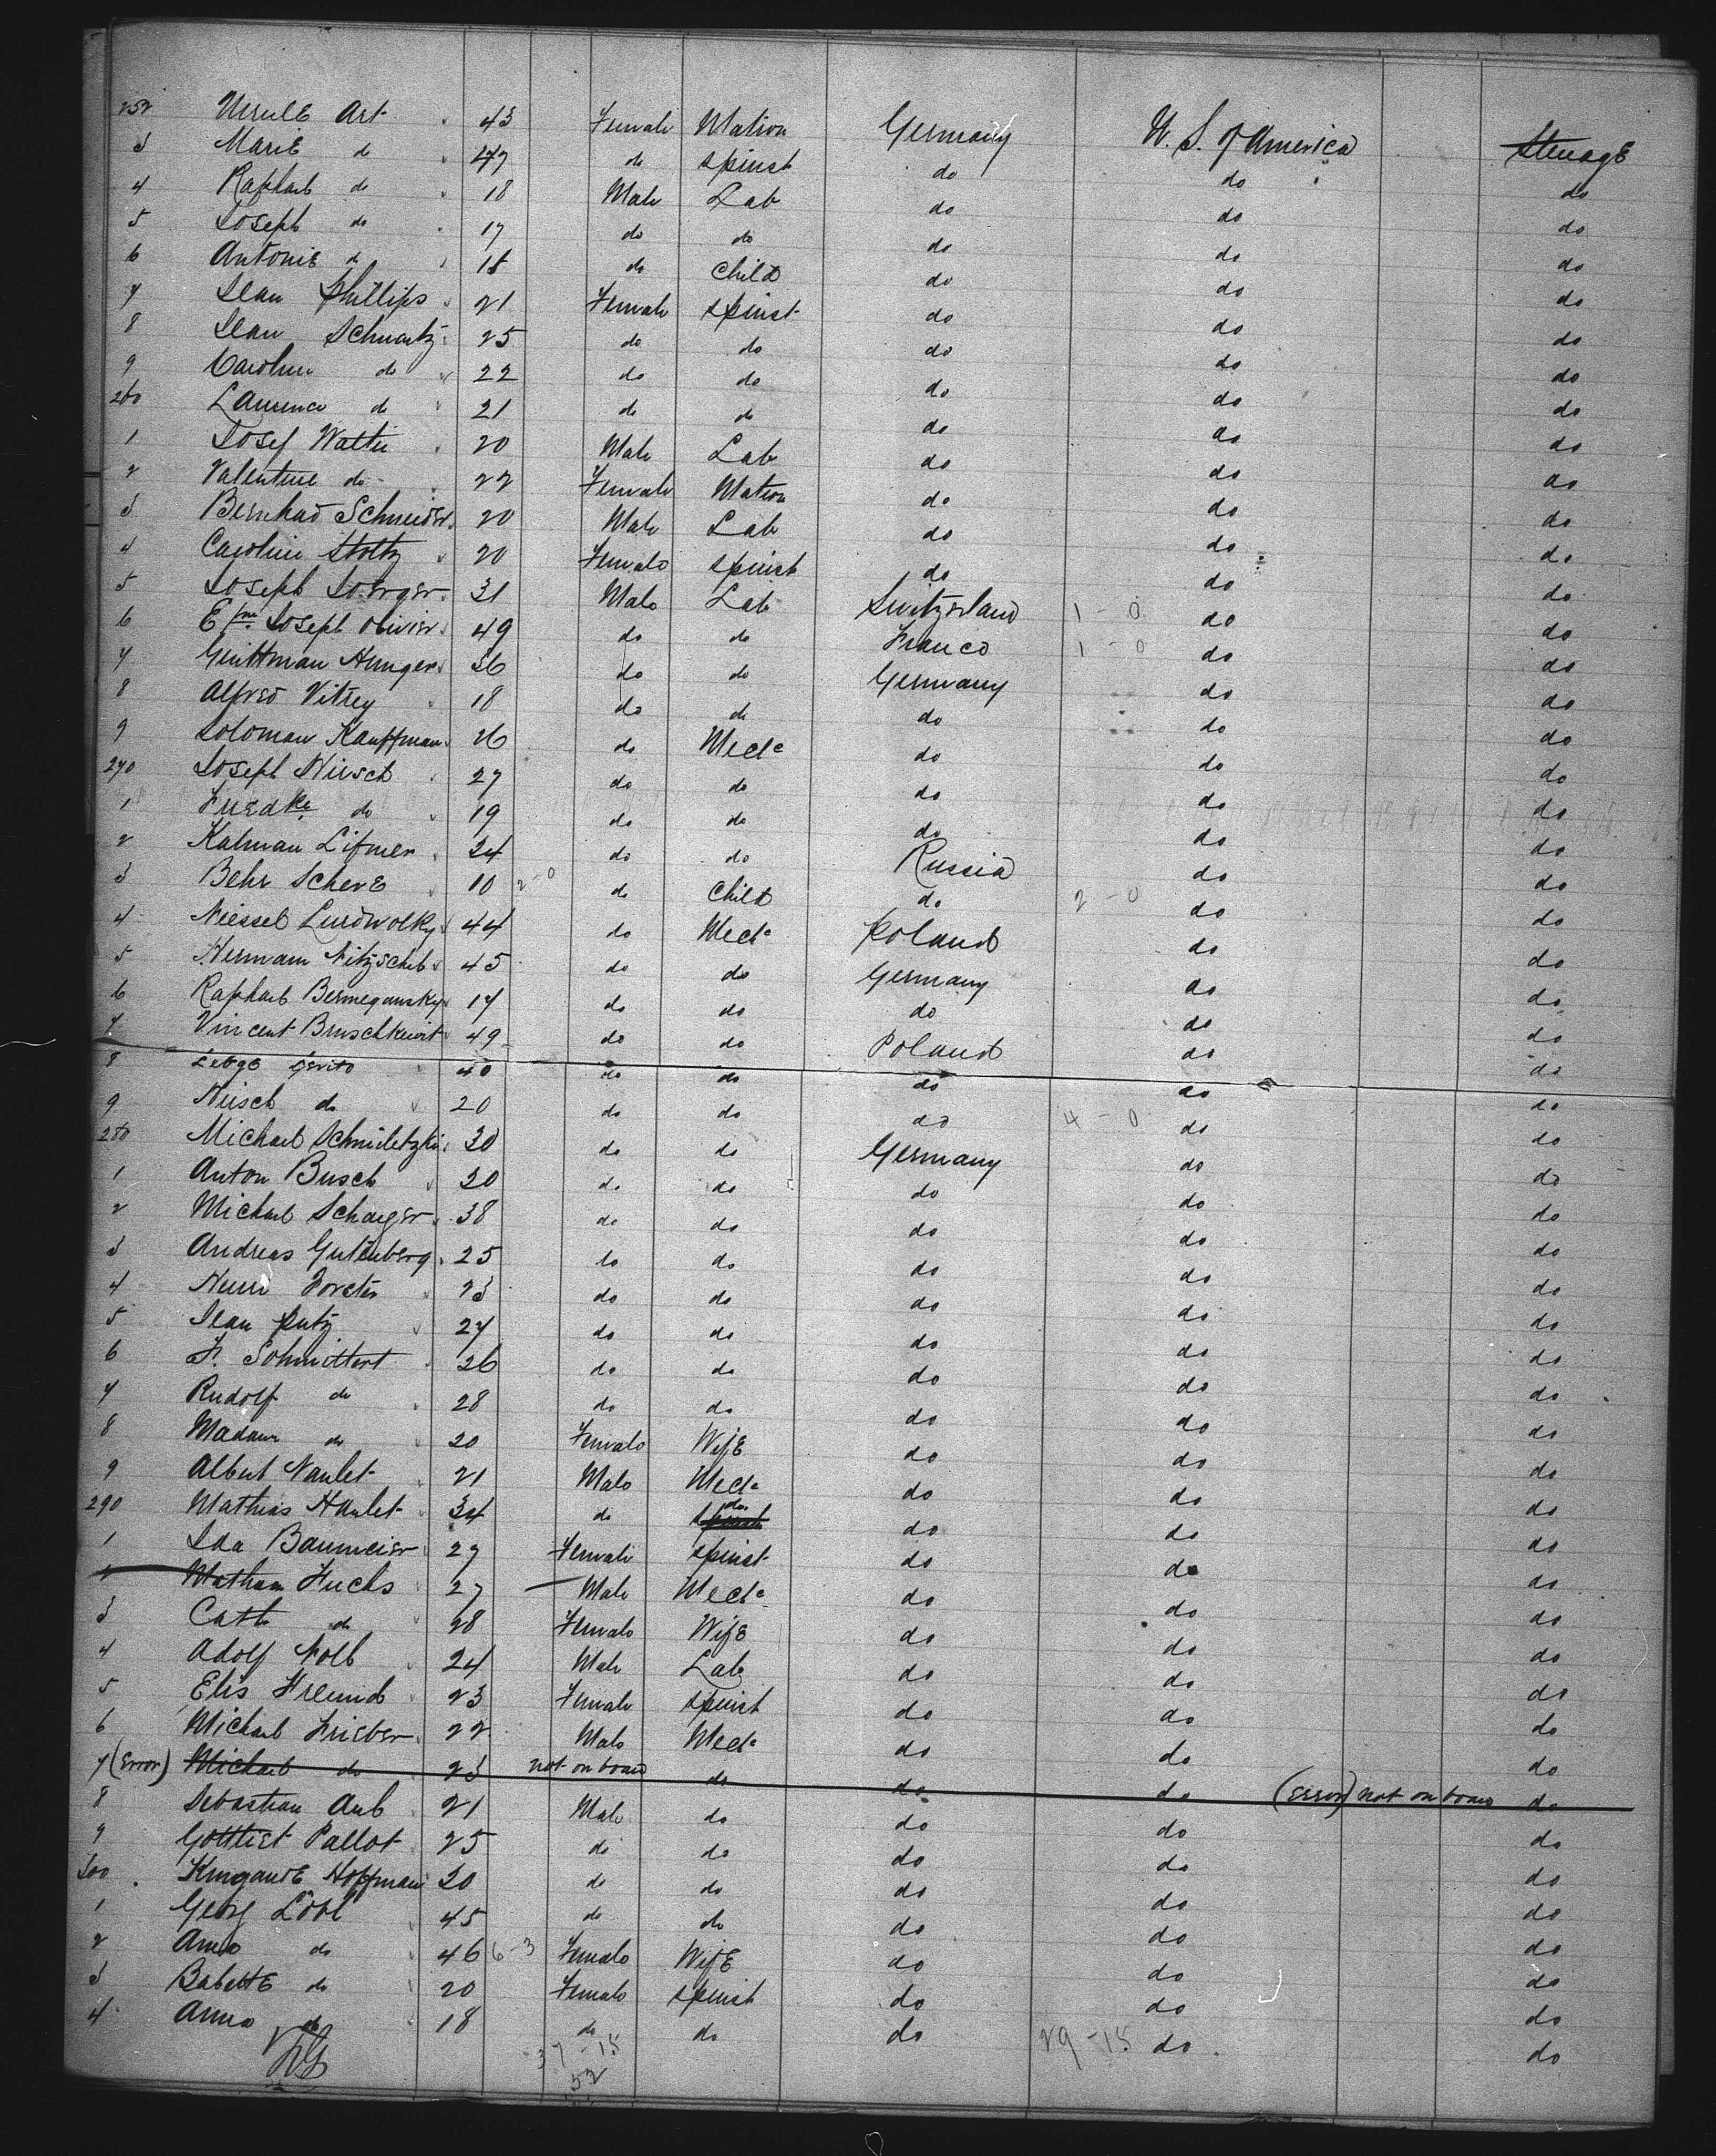 252 Ursule Art 43 Female Matron Germany U. S. of America Steerage
3 Marie do 47 do Spinst do do do
4 Raphael do 18 Male Lab do do do
5 Joseph do 17 do do do do do
6 Antonie do do Child do do do
7 Jean Phillips 21 Female Spinst do do do
8 Jean Schwartz 25 do do do do do
9 Caroline do 22 do do do do do
260 Laurence do 21 do do do do do
1 Josef Walter 20 Male Lab do do do
2 Valentine do 22 Female Matron do do do
3 Bernhard Schneider 20 Male Lab do do do
4 Caroline Stoltz 20 Female Spinst do do do
5 Joseph 31 Male Lab Switzerland 1 - 0 do do
6 Joseph Olivier 49 do do France 1 - 0 do do
7 Hunger 36 do do Germany do do
8 Alfred Vitrey 18 do do do do do
9 Soloman Kauffman 26 do Mecc do do do
270 Joseph Hirsch 27 do do do do do
1 Fredke do 19 do do do do do
2 Kalman Lifmer 24 do do Russia do do
3 Behr Schere 10 2-0 do Child do 2 - 0 do do
4 44 do Mecc Poland do do
5 Hermann Nitzschel 45 do do Germany do do
6 Raphael 17 do do do do do
7 Vincent 49 do do Poland do do
8 40 do do do do do
9 Hirsch do 20 do do do 4 - 0 do do
280 Michael 30 do do Germany do do
1 Anton Busch 20 do do do do do
2 Michael 38 do do do do do
3 Andreas Gutenberg 25 do do do do do
4 Henri 23 do do do do do
5 Jean Putz 27 do do do do do
6 26 do do do do do
7 Rudolf do 28 do do do do do
8 Madam do 20 Female Wife do do do
9 Albert 21 Male Mecc do do do
290 Mathias 34 do do do do do
1 Ida Baumeier 27 Female Spinst do do do
2 Fuchs 27 Male Mecc do do do
3 Cath do 28 Female Wife do do do
4 Adolf 24 Male Lab do do do
5 Elis Freund 23 Female Spinst do do do
6 Michael 22 Male Mecc do do do
7 (Error) Michael do 23 not on board do do do (Error) not on board do
8 Sebastian 21 Male do do do do
9 Pallot 25 do do do do do
300 Hoffman 30 do do do do do
1 Georg 45 do do do do do
2 Anna do 46 6-3 Female Wife do do do
3 Babette do 20 Female Spinst do do do
4 Anna do 18 do do do 29-15 do do
37-15
52